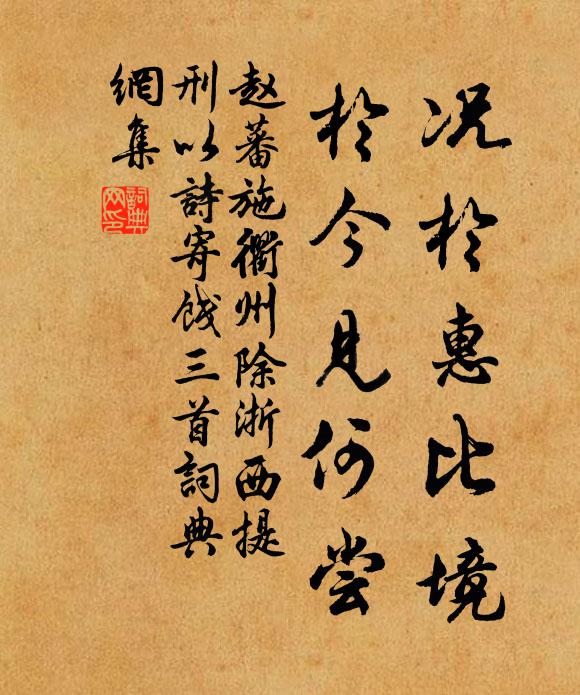 况於惠比境
於今見何尝
赵蕃施衢州除浙西提
刑以詩寄餞三首詞典
網集
詞典
网印